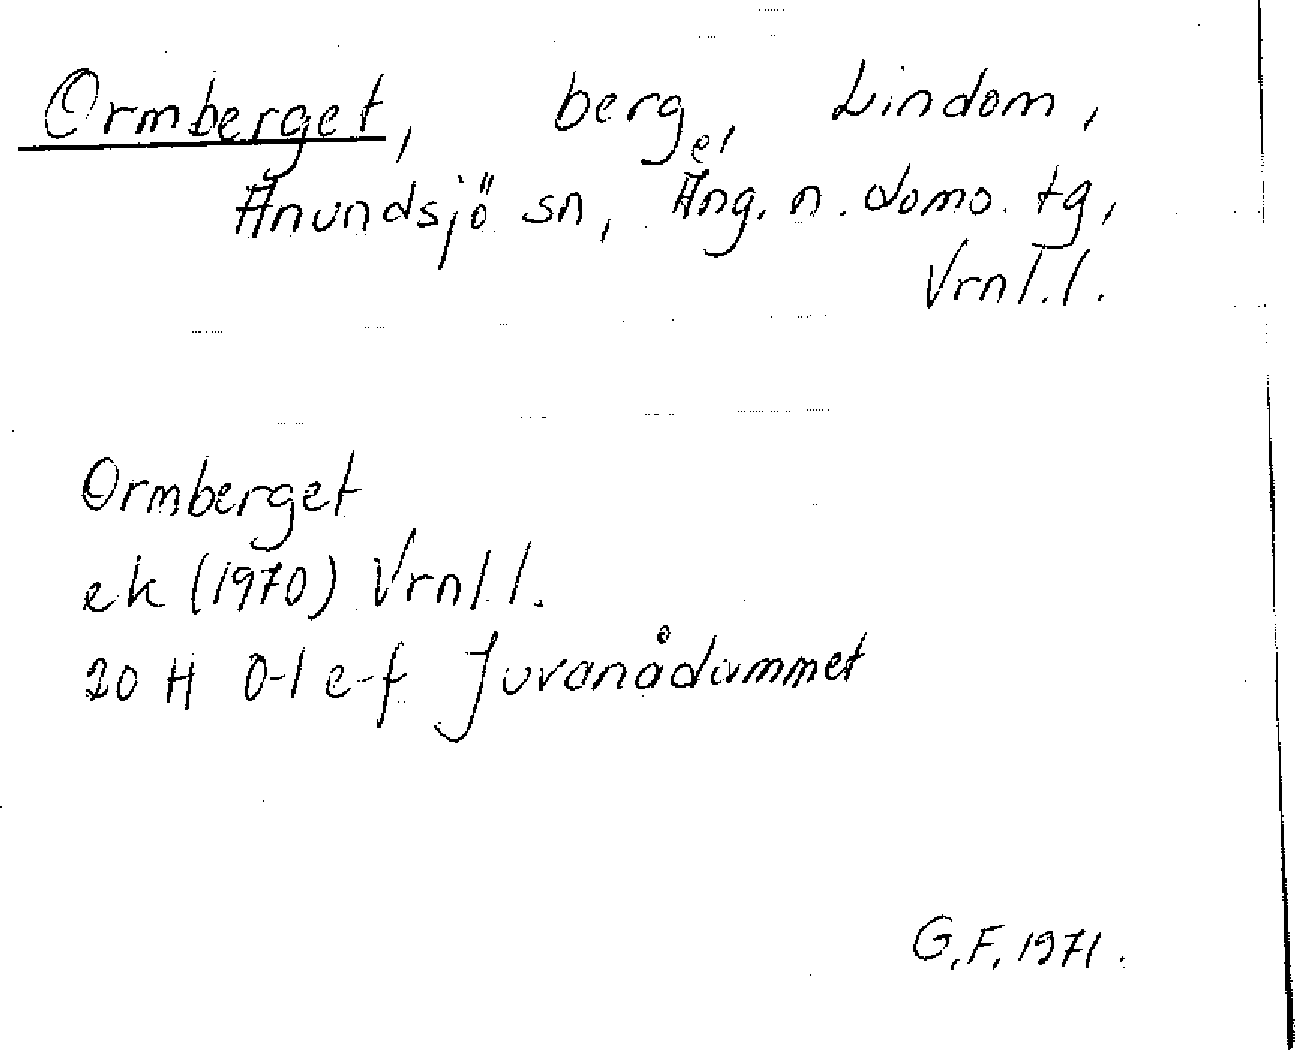 Ormberget, berg, Lindom,
Anundsjö sn, Ång. n. doms. tg,
Vrnl.l.
Ormberget
ek (1970) Vrnl l.
20 H 0-1 e-f Juvanådammet
G.F. 1971.